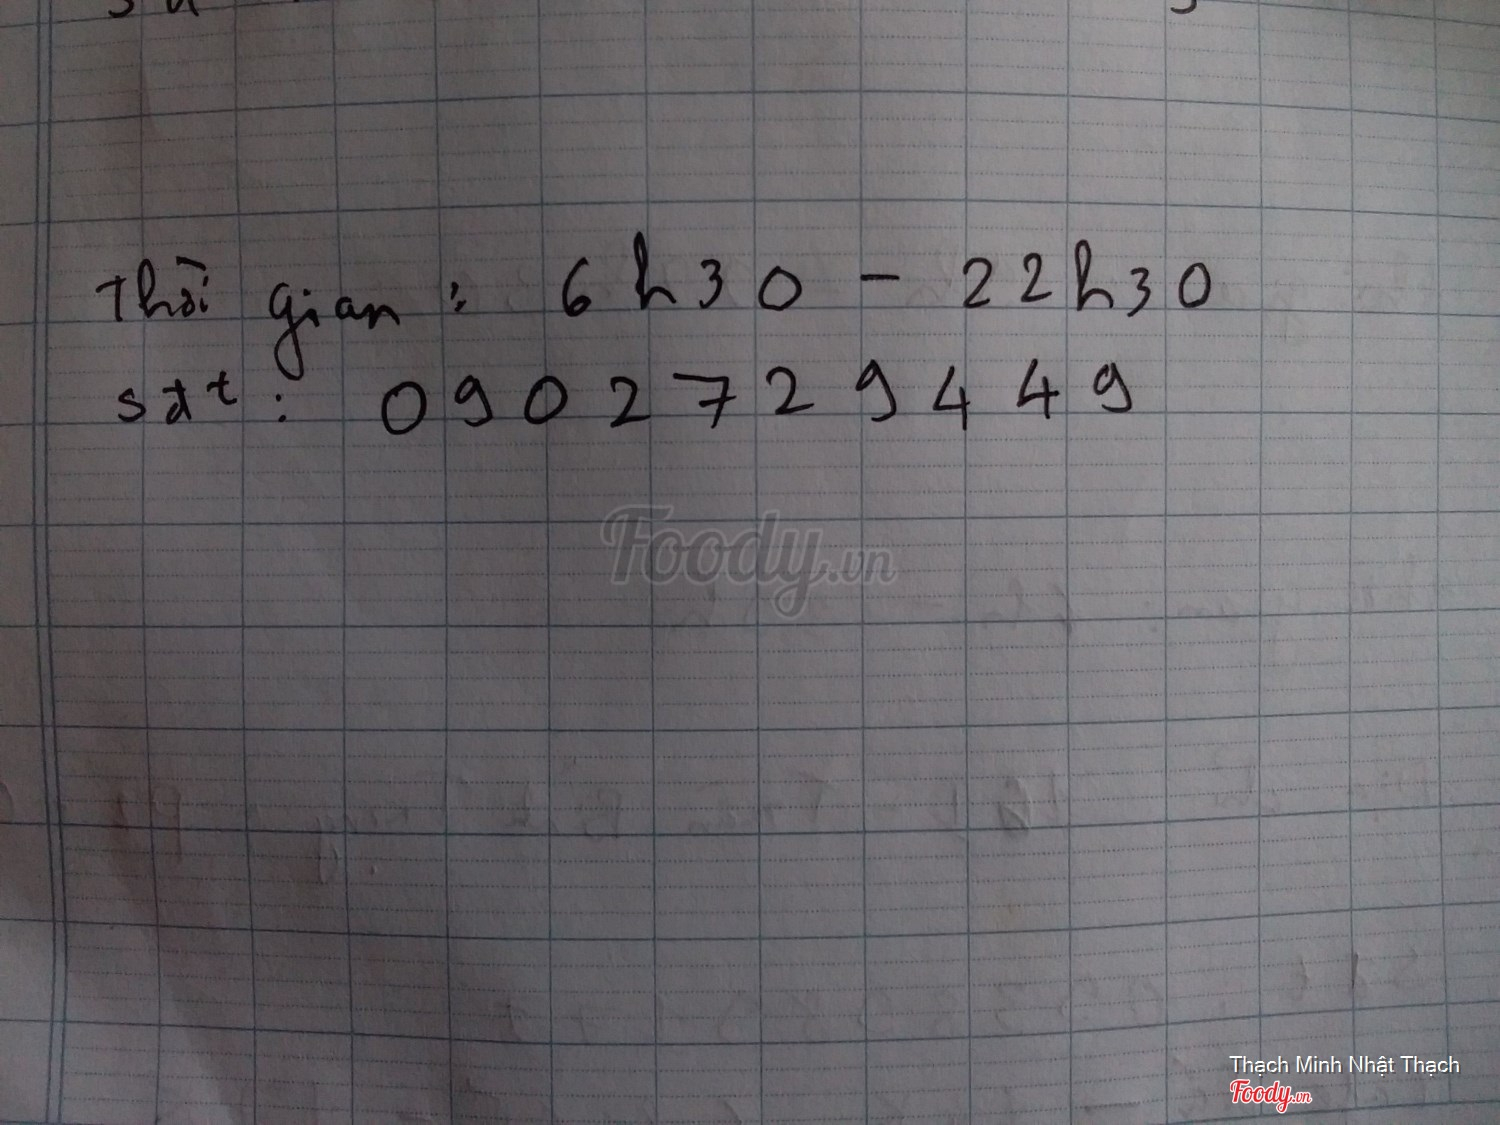 Thời gian : 6h30 - 22h30
sđt : 0902729449
Foody.vn
Thạch Minh Nhật Thạch
Foody.vn